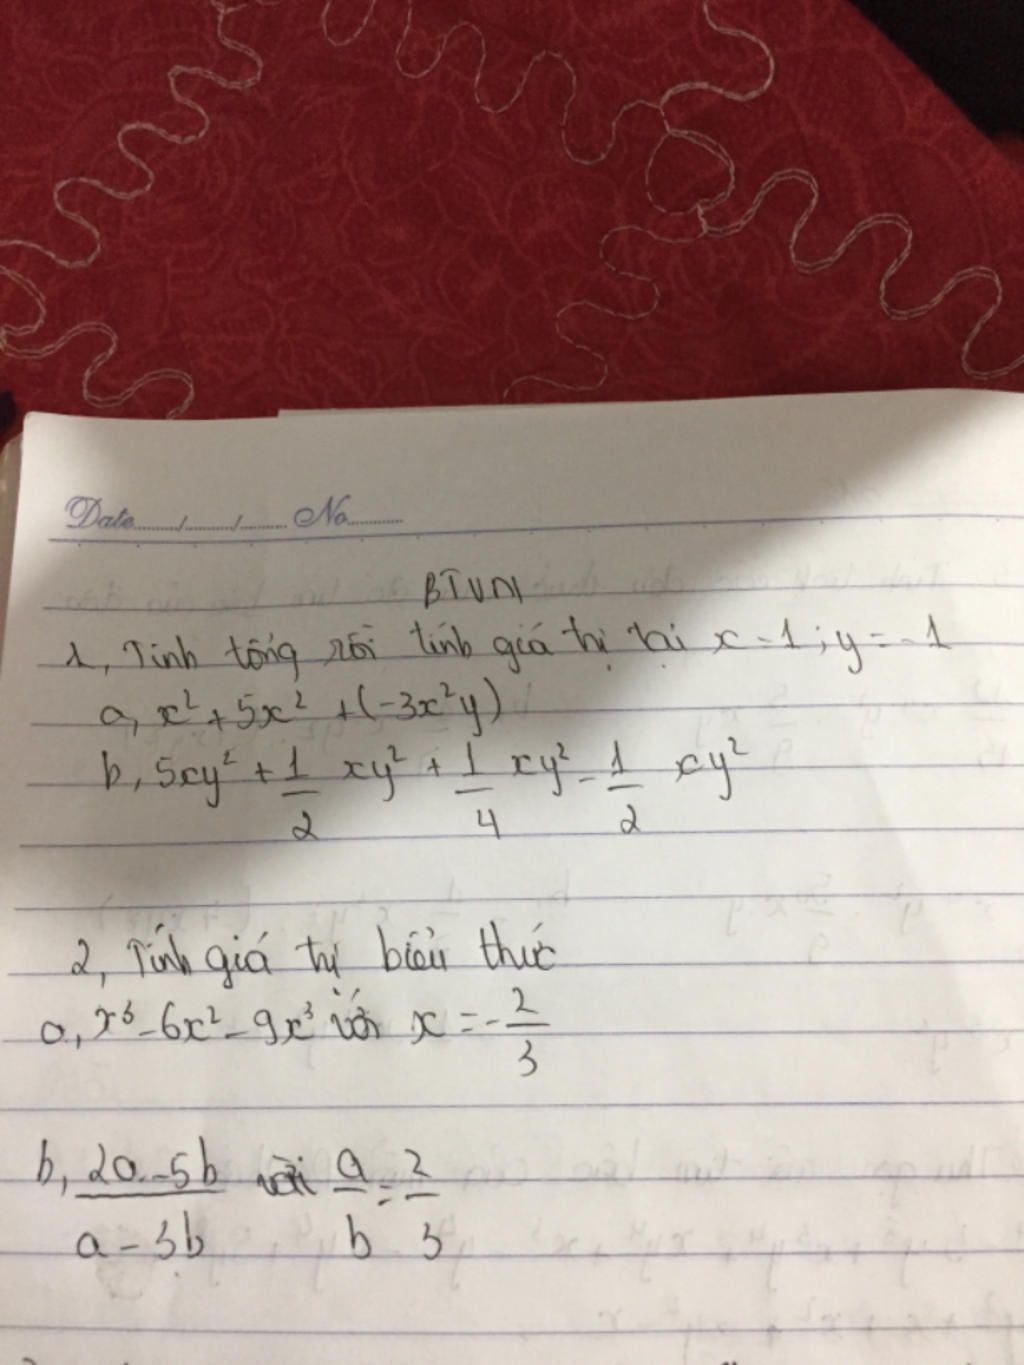 Date......../......../........ No...........
BTVN
1, Tính tổng rồi tính giá trị tại x = 1 ; y = -1
a, x² + 5x² + (-3x²y)
b, 5xy² + 1/2 xy² + 1/4 xy² - 1/2 xy²
2, Tính giá trị biểu thức
a, x³ - 6x² - 9x³ với x = -2/3
b, 2a - 5b / a - 3b với a/b = 2/3